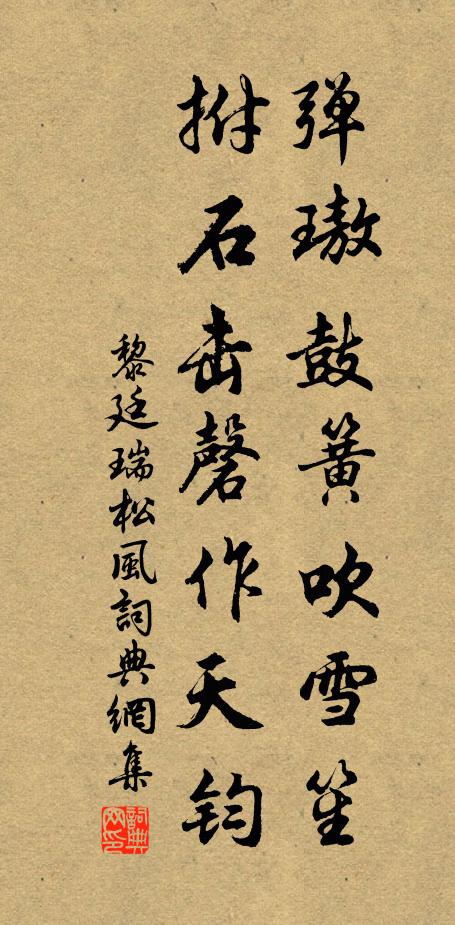 弹璈鼓簧吹雪笙
拊石击磬作天钧
黎廷瑞松風詞典網集
詞典網印